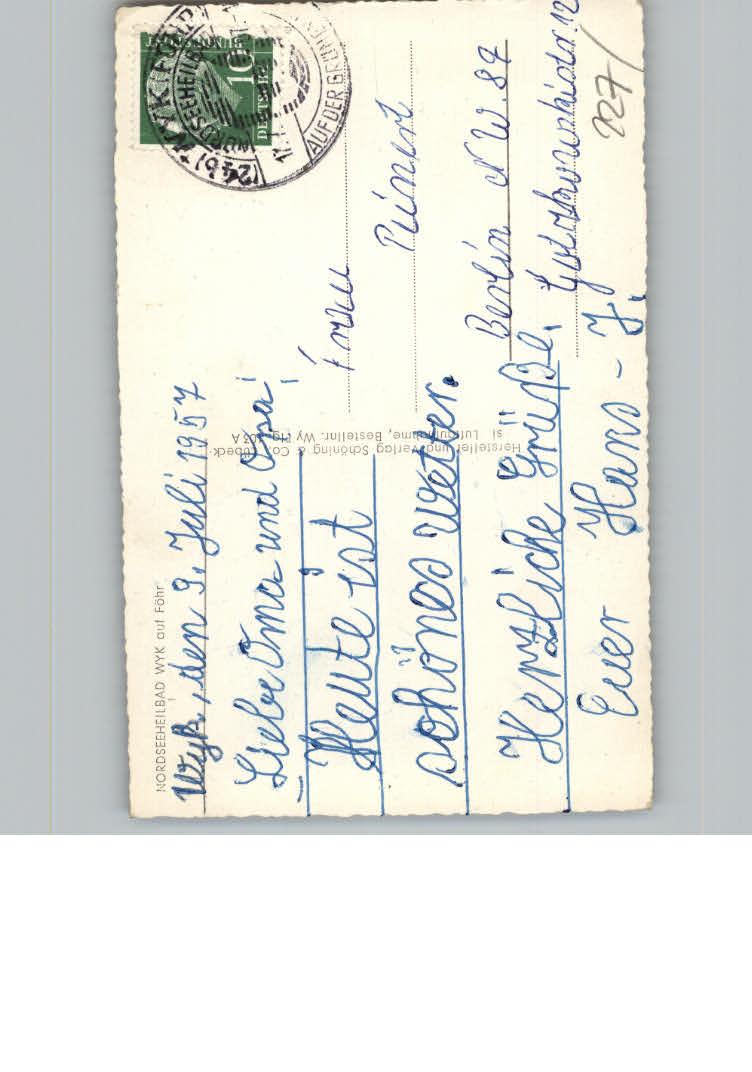 NORDSEEHEILBAD WYK auf Föhr
Wyk, den 9. Juli 1957
Liebe Oma und Opa!
Heute ist
schönes Wetter.
Herzliche Grüße.
Euer Hans-J.
Hersteller und Verlag Schöning & Co., Lübeck
Luftaufnahme, Bestellnr. Wy
Frau
Berlin NW. 87
127/
10
DEUTSCHE
BUNDESPOST
(24b) WYK (FÖHR)
NORDSEEHEILBAD
AUF DER GRÜNEN